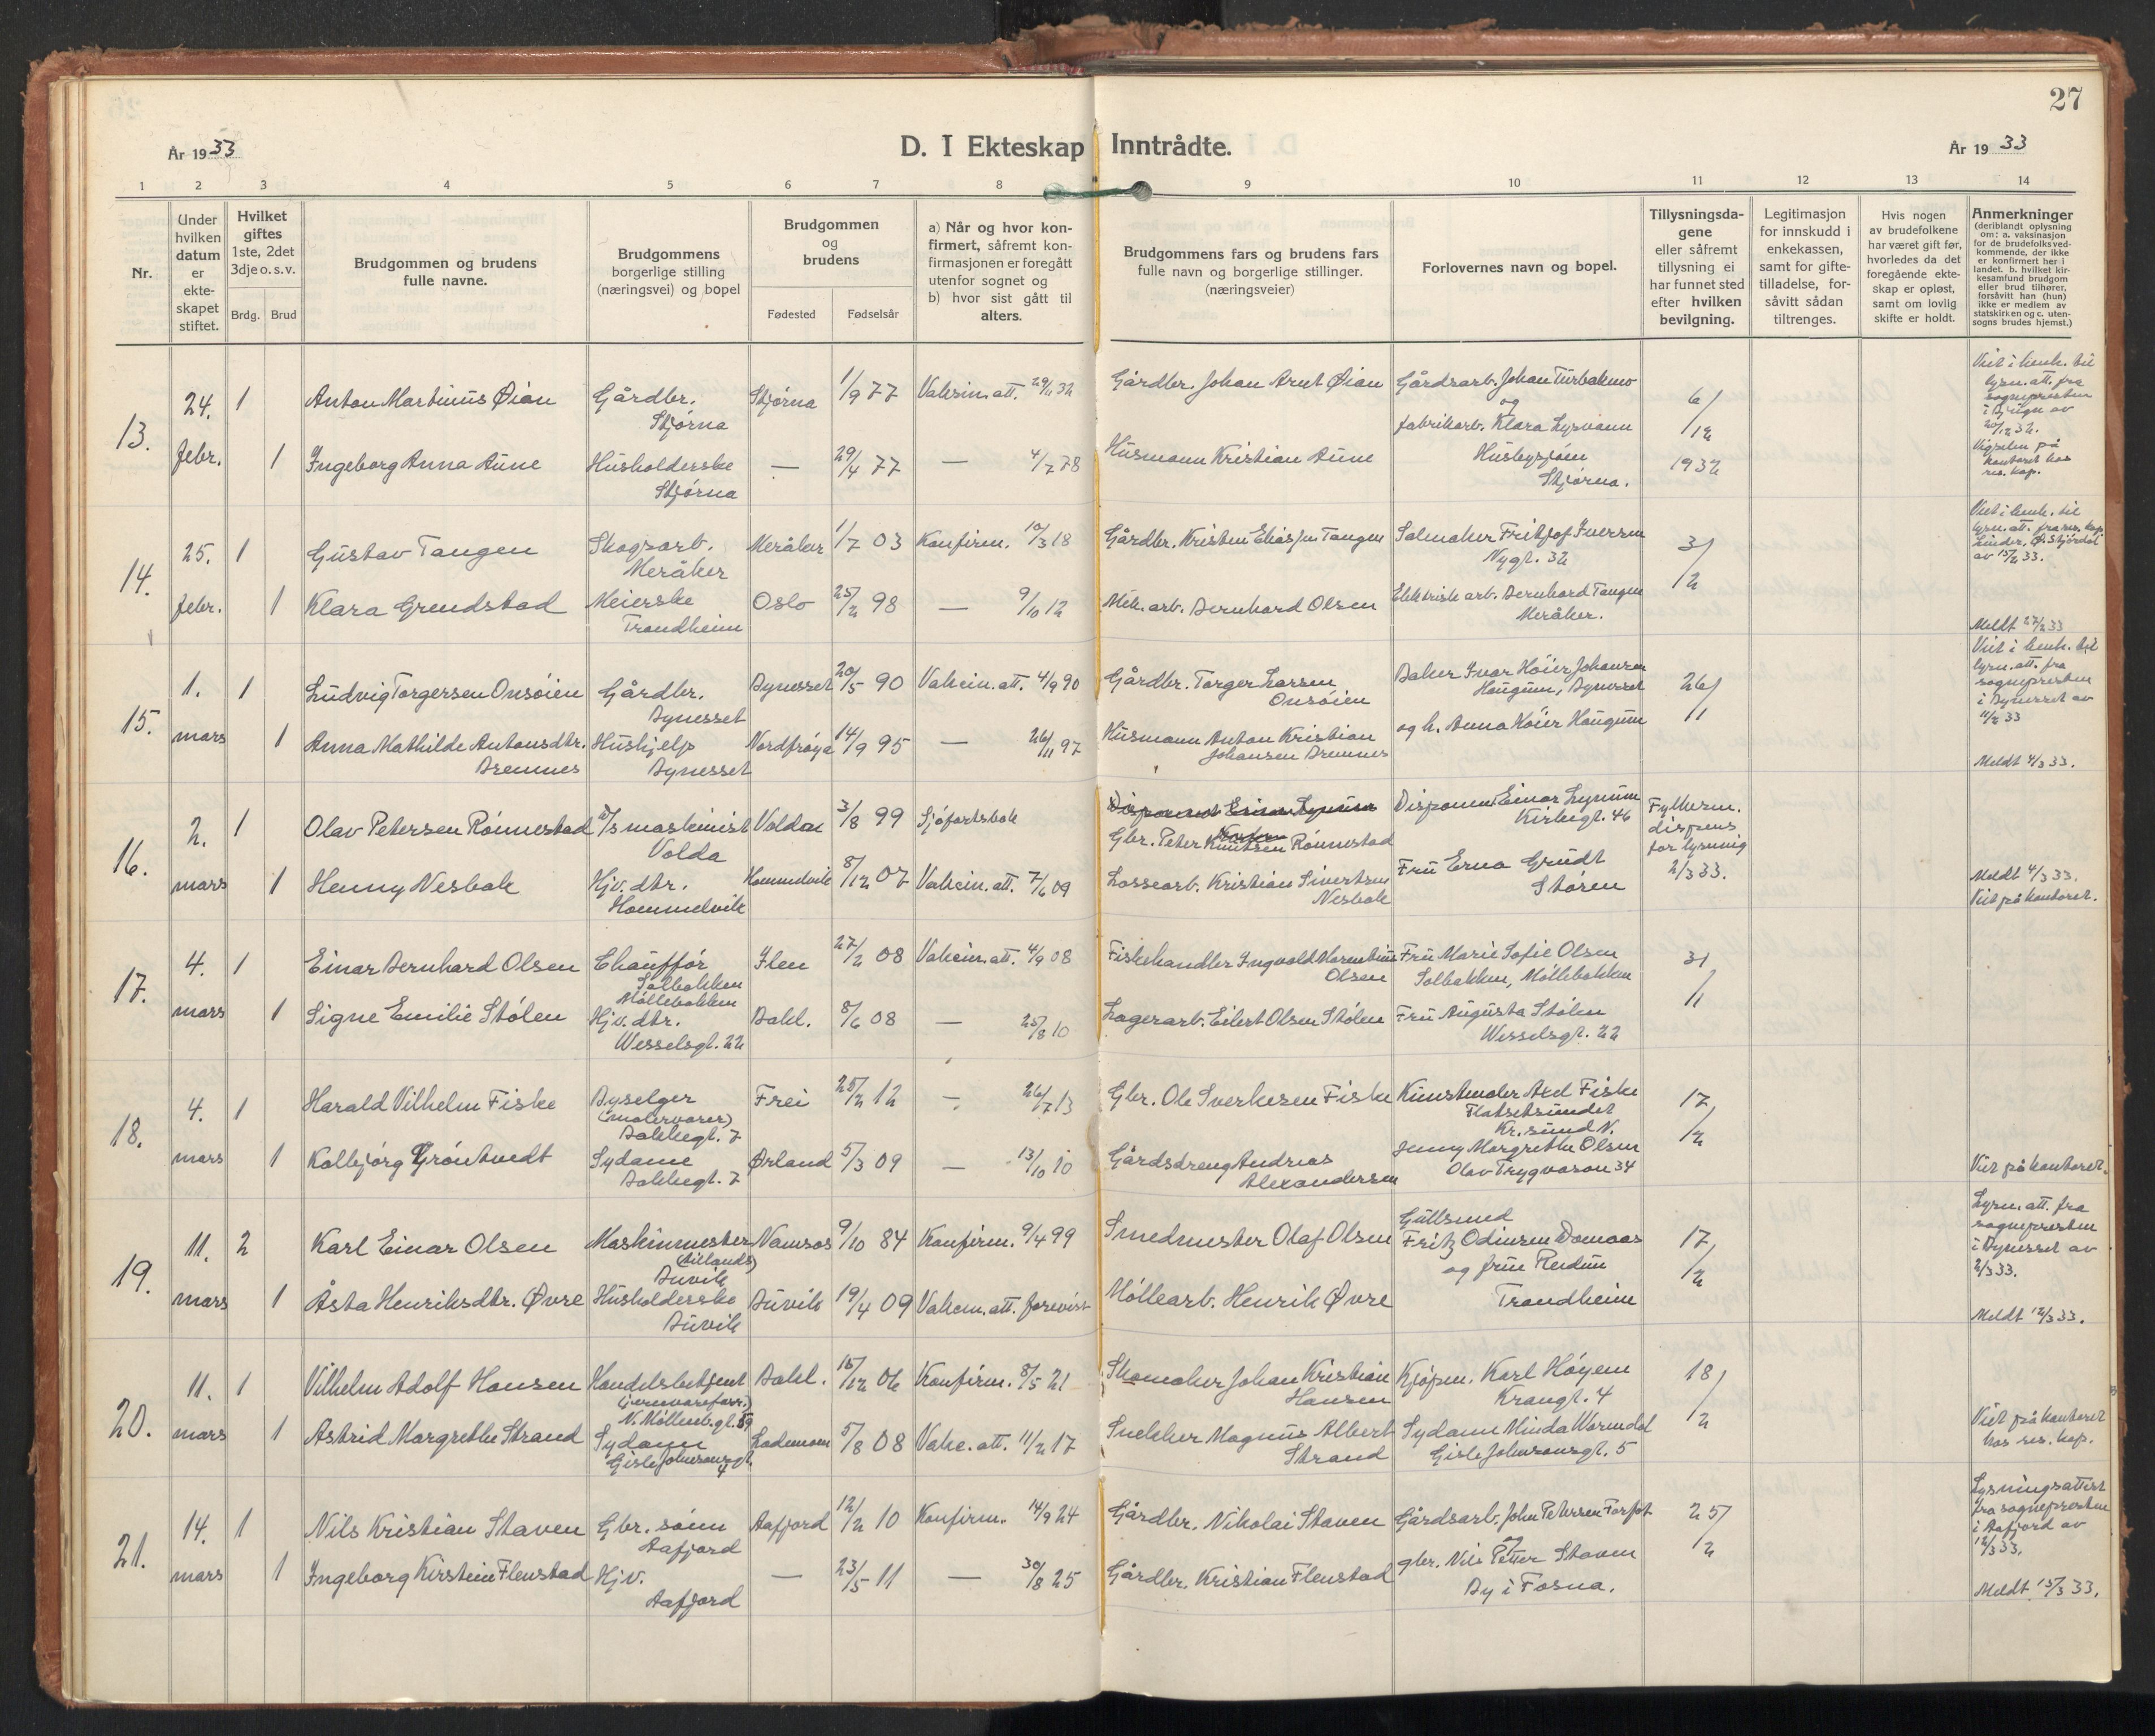 27
År 1933
D. I Ekteskap Inntrådte.
År 1933
1 2 3 4 5 6 7 8 9 10 11 12 13 14
Nr.
Under hvilken datum er ekteskapet stiftet.
Hvilket giftes 1ste, 2det 3dje o. s. v.
Brdg. Brud
Brudgommen og brudens fulle navne.
Brudgommens borgerlige stilling (næringsvei) og bopel
Brudgommen og brudens
Fødested Fødselsår
a) Når og hvor konfirmert, såfremt konfirmasjonen er foregått utenfor sognet og
b) hvor sist gått til alters.
Brudgommens fars og brudens fars fulle navn og borgerlige stillinger. (næringsveier)
Forlovernes navn og bopel.
Tillysningsdagene eller såfremt tillysning ei har funnet sted efter hvilken bevilgning.
Legitimasjon for innskudd i enkekassen, samt for giftetilladelse, forsåvitt sådan tiltrenges.
Hvis nogen av brudefolkene har været gift før, hvorledes da det foregående ekteskap er opløst, samt om lovlig skifte er holdt.
Anmerkninger (deriblandt oplysning om: a. vaksinasjon for de brudefolks vedkommende, der ikke er konfirmert her i landet. b. hvilket kirkesamfund brudgom eller brud tilhører, forsåvitt han (hun) ikke er medlem av statskirken og c. utensogns brudes hjemst.)
13.
24. febr.
1 Anton Martinus Øian Gårdbr. Stjørna Stjørna 1/9 77 Vaksin. att. 29/11 32 Gårdbr. Johan Arnt Øian
1 Ingeborg Anna Aune Husholderske Stjørna — 29/4 77 — 4/7 78 Husmann Kristian Aune
Gårdsarb. Johan
og
fabrikarb. Klara
Husbysjøen
Stjørna.
6/12 1932
Viet i henh. til
lysn. att. fra
sognepresten
i Bjugn av
20/12 32.
Vigselen på
kontoret hos
res. kap.
14.
25. febr.
1 Gustav Tangen Skogsarb. Meråker Meråker 1/7 03 Konfirm. 10/3 18 Gårdbr. Kristen Eliassen Tangen
1 Klara Grendstad Meierske Trondheim Oslo 25/2 98 — 9/10 12 Mek. arb. Bernhard Olsen
Salmaker Fritjof Iversen
Nygt. 32
Elektrisk arb. Bernhard Tangen
Meråker.
3/2
Viet i henh. til
lysn. att. fra res. kap.
Linder, Ø. Stjørdal
av 15/2 33.
Meldt 27/2 33
15.
1. mars
1 Ludvig Torgersen Onsøien Gårdbr. Bynesset Bynesset 20/5 90 Vaksin. att. 4/9 90 Gårdbr. Torger Larsen Onsøien
1 Anna Mathilde Antonsdtr. Bremnes Hushjelp Bynesset Nordfrøya 14/9 95 — 26/11 97 Husmann Anton Kristian Johansen Bremnes
Baker Ivar Høier Johansen
Haugum, Bynesset
og h. Anna Høier Haugum
26/11
Viet i henh. til
lysn. att. fra
sognepresten
i Bynesset av
11/2 33
Meldt 4/3 33.
16.
2. mars
1 Olav Petersen Rønnestad D/S maskinist Volda Volden 3/8 99 Sjøfartsbok
Disponent Einar Lysum
Gbr. Peter Knutsen Rønnestad
1 Henny Nesbak Hjv. dtr. Hommelvik Hommelvik 8/12 07 Vaksin. att. 7/6 09 Lossearb. Kristian Sivertsen Nesbak
Disponent Einar Lysum
Kirkegt. 46
Fru Erna Grudt
Støren
Fylkesm.
dispens
for lysning
2/3 33.
Meldt 4/3 33.
Viet på kontoret.
17.
4. mars
1 Einar Bernhard Olsen Chauffør Solbakken Møllebakken Ilen 27/2 08 Vaksin. att. 4/9 08 Fiskehandler Ingvald Olsen
1 Signe Emilie Stølen Hjv. dtr. Wesselsgt. 22 Bakl. 8/6 08 — 25/8 10 Lagerarb. Eilert Olsen Stølen
Fru Marie Sofie Olsen
Solbakken, Møllebakken
Fru Augusta Stølen
Wesselsgt. 22
31/1
18.
4. mars
1 Harald Vilhelm Fiske Byselger (malervarer) Bakkegt. 7 Frei 25/2 12 — 26/7 13 Gbr. Ole Sverkesen Fiske
1 Kolbjørg Grøntvedt Sydame Bakkegt. 7 Ørland 5/3 09 — 13/10 10 Gårdsdreng Andreas Alexandersen
Kunstmaler Axel Fiske
Flatsetsundet
Kr.sund N.
Jenny Margrethe Olsen
Olav Trygvason 34
17/2
Viet på kontoret.
19.
11. mars
2 Karl Einar Olsen Maskinmester (tillands) Buvik Namsos 9/10 84 Konfirm. 9/4 99 Smedmester Olaf Olsen
1 Åsta Henriksdtr. Øvre Husholderske Buvik Buvik 19/4 09 Vaksin. att. forevist Møllearb. Henrik Øvre
Gullsmed
Fritz Odinsen Domaas
og frue Reidun
Trondheim
17/2
Lysn. att. fra
sognepresten
i Bynesset av
2/3 33.
Meldt 12/3 33.
20.
11. mars
1 Vilhelm Adolf Hansen Handelsbetjent (jernvareforr.) N. Møllenb.gt. 59 Bakl. 15/12 06 Konfirm. 8/5 21 Skomaker Johan Kristian Hansen
1 Astrid Margrethe Strand Sydame Gisle Johnsonsgt. 4 Lademoen 5/8 08 Vaks. att. 11/2 17 Snekker Magnus Albert Strand
Kjøpm. Karl Høyem
Krangt. 4
Sydame Minda Wormdal
Gisle Johnsonsgt. 5
18/2
Viet på kontoret
hos res. kap.
21.
14. mars
1 Nils Kristian Staven Gbr. sønn Aafjord Aafjord 12/2 10 Konfirm. 14/9 24 Gårdbr. Nikolai Staven
1 Ingeborg Kirstine Flenstad Hjv. Aafjord — 23/5 11 — 30/8 25 Gårdbr. Kristian Flenstad
Gårdsarb. John Petersen Forfot
og
gbr. Nils Petter Staven
By i Fosna.
25/2
Lysningsattest
fra sognepresten
i Aafjord av
12/3 33.
Meldt 15/3 33.